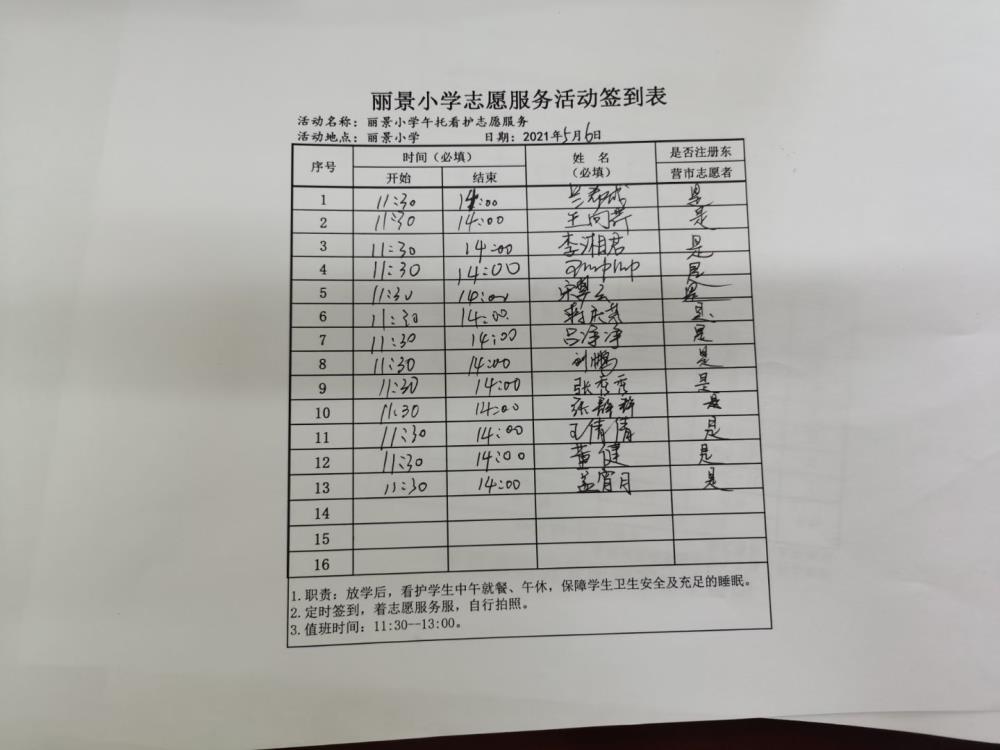 丽景小学志愿服务活动签到表
活动名称：丽景小学午托看护志愿服务
活动地点：丽景小学 日期：2021年5月6日
序号 时间（必填） 姓 名（必填） 是否注册东营市志愿者
开始 结束
1 11:30 14:00 是
2 11:30 14:00 是
3 11:30 14:00 李湘君 是
4 11:30 14:00 是
5 11:30 14:00 是
6 11:30 14:00. 是.
7 11:30 14:00 吕净净 是
8 11:30 14:00 刘鹏 是
9 11:30 14:00 张秀秀 是
10 11:30 14:00 张静静 是
11 11:30 14:00 王倩倩 是
12 11:30 14:00 董健 是
13 11:30 14:00 孟宵月 是
14
15
16
1.职责：放学后，看护学生中午就餐、午休，保障学生卫生安全及充足的睡眠。
2.定时签到，着志愿服务服，自行拍照。
3.值班时间：11:30--13:00。